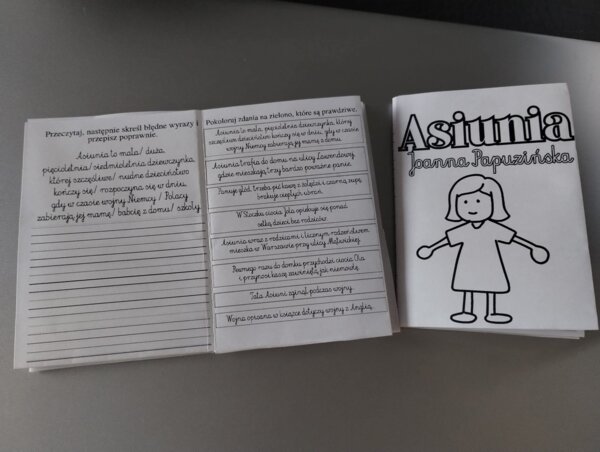 Przeczytaj, następnie skreśl błędne wyrazy i
przepisz poprawnie.
Asiunia to mała/ duża,
pięcioletnia/ siedmioletnia dziewczynka,
której szczęśliwe/ nudne dzieciństwo
kończy się/ rozpoczyna się w dniu,
gdy w czasie wojny Niemcy/ Polacy
zabierają jej mamę/ babcię z domu/ szkoły.
Pokoloruj zdania na zielono, które są prawdziwe.
Asiunia to mała, pięcioletnia dziewczynka, której
szczęśliwe dzieciństwo kończy się w dniu, gdy w czasie
wojny Niemcy zabierają jej mamę z domu.
Asiunia trafia do domu na ulicy Lawendowej,
gdzie mieszkają trzy bardzo poważne panie.
Panuje głód, trzeba pić kawę z żołędzi i czarną zupę,
brakuje ciepłych ubrań.
W Słoczku ciocia Jola opiekuje się ponad
setką dzieci bez rodziców.
Asiunia wraz z rodzicami i licznym rodzeństwem
mieszka w Warszawie przy ulicy Mątwickiej.
Pewnego razu do domku przychodzi ciocia Ola
i przynosi kaszę zawiniętą jak niemowlę.
Tata Asiuni zginął podczas wojny.
Wojna opisana w książce dotyczy wojny z Anglią.
Asiunia
Joanna Papuzińska